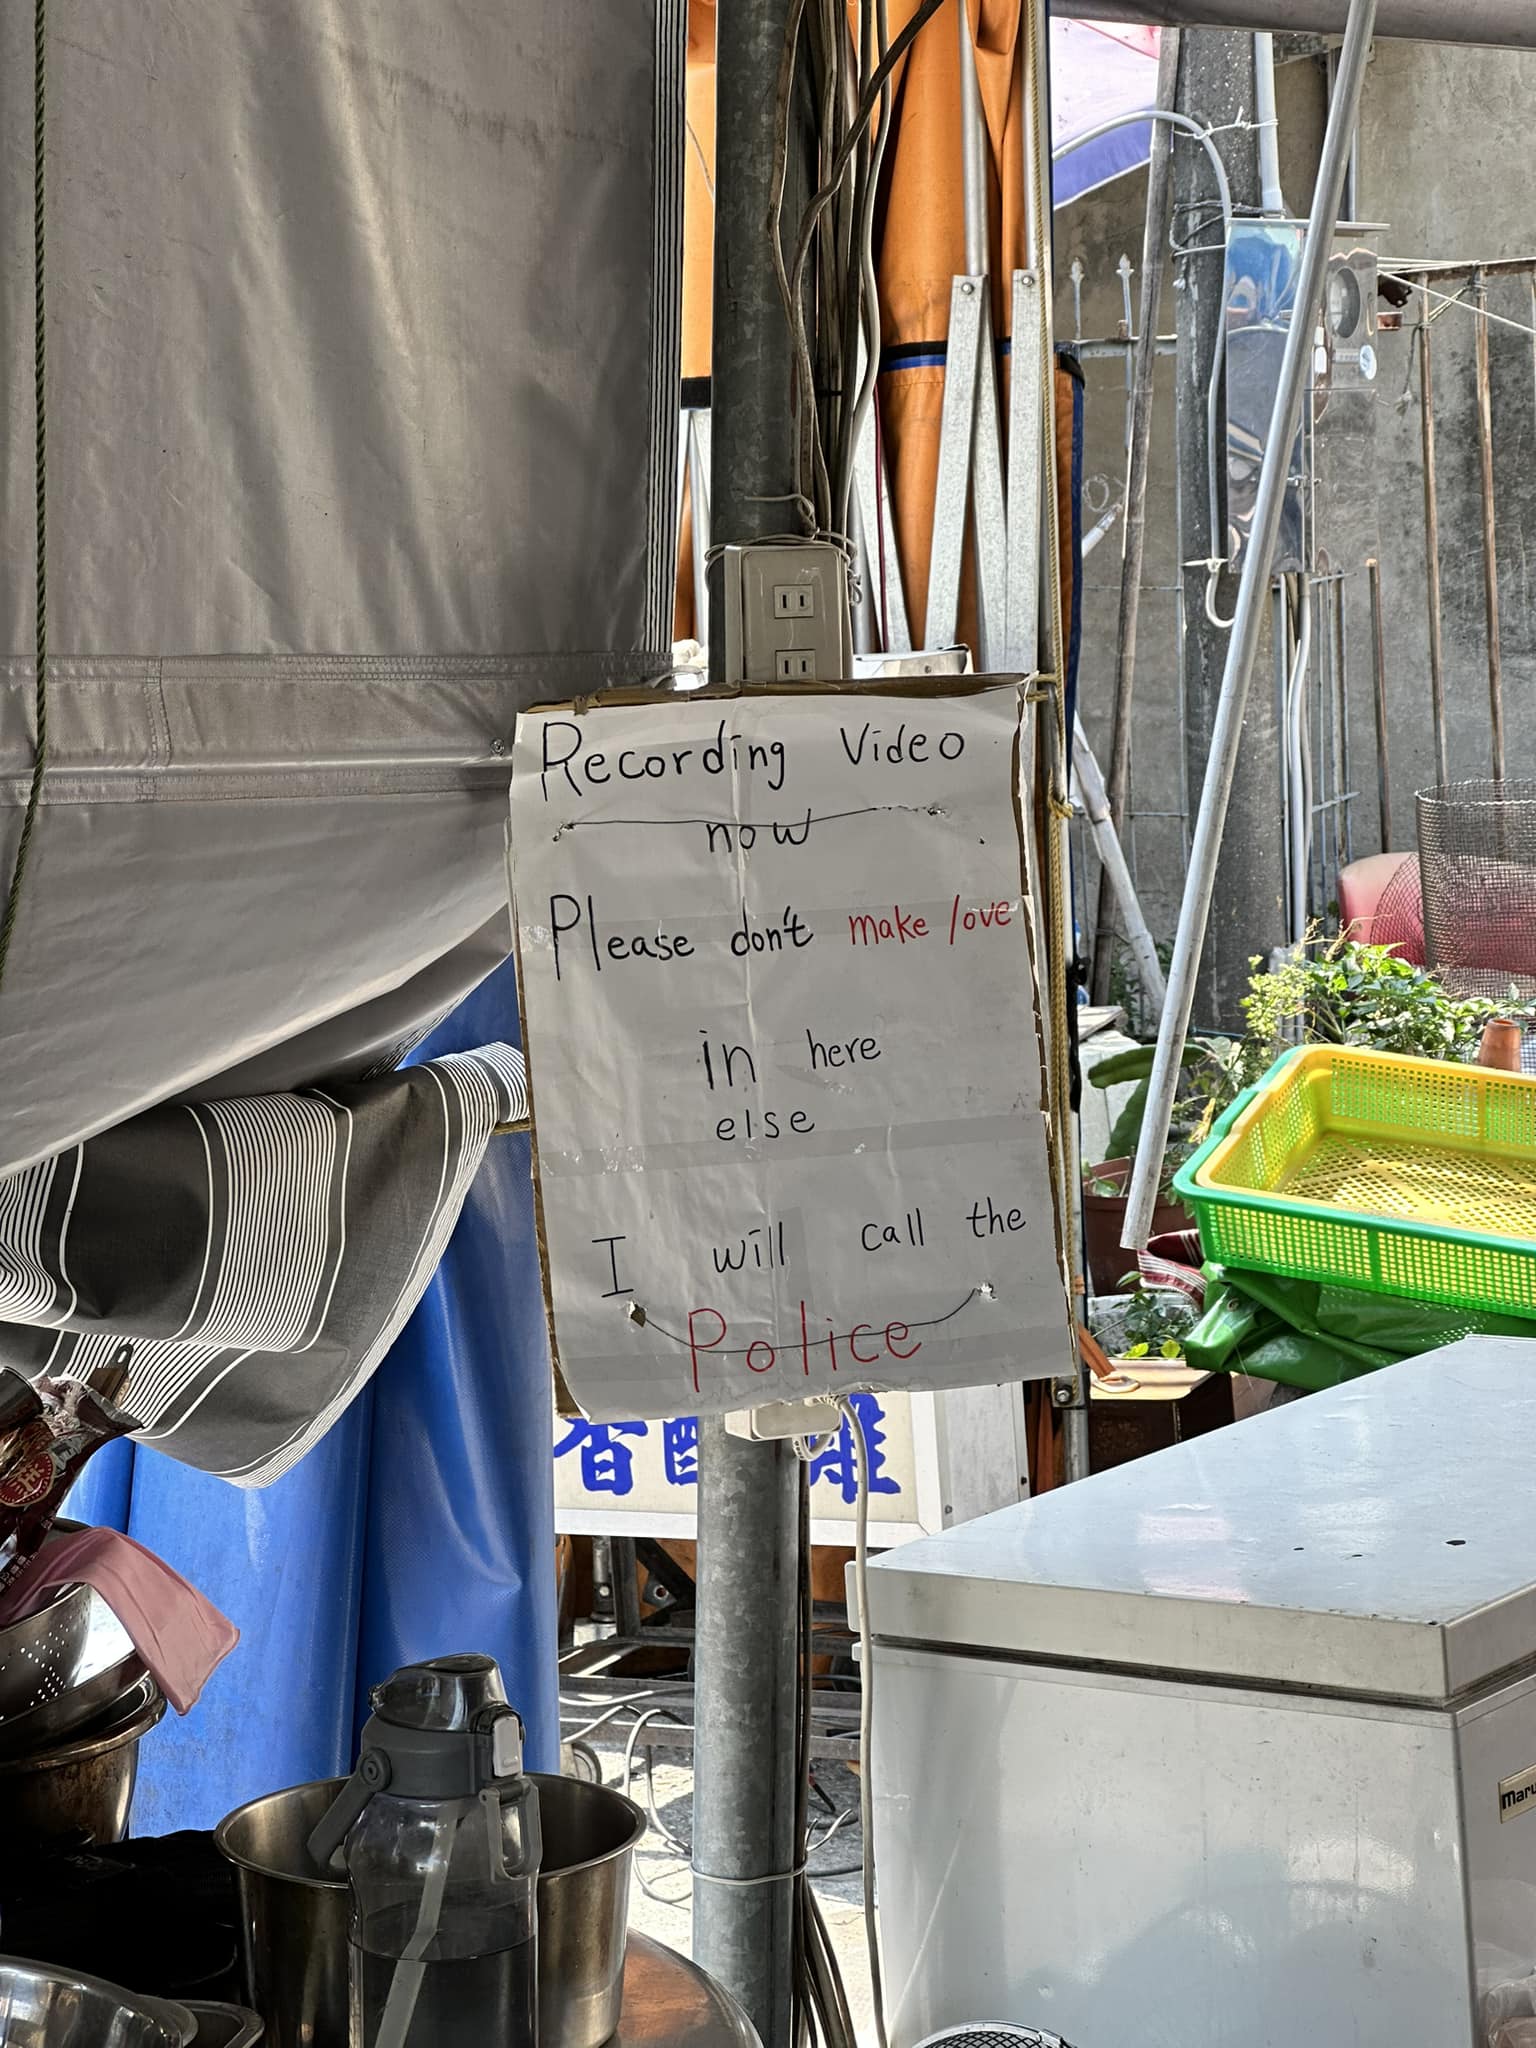 Recording Video
now
Please don't make love
in here
else
I will call the
Police
香酥雞
Maru